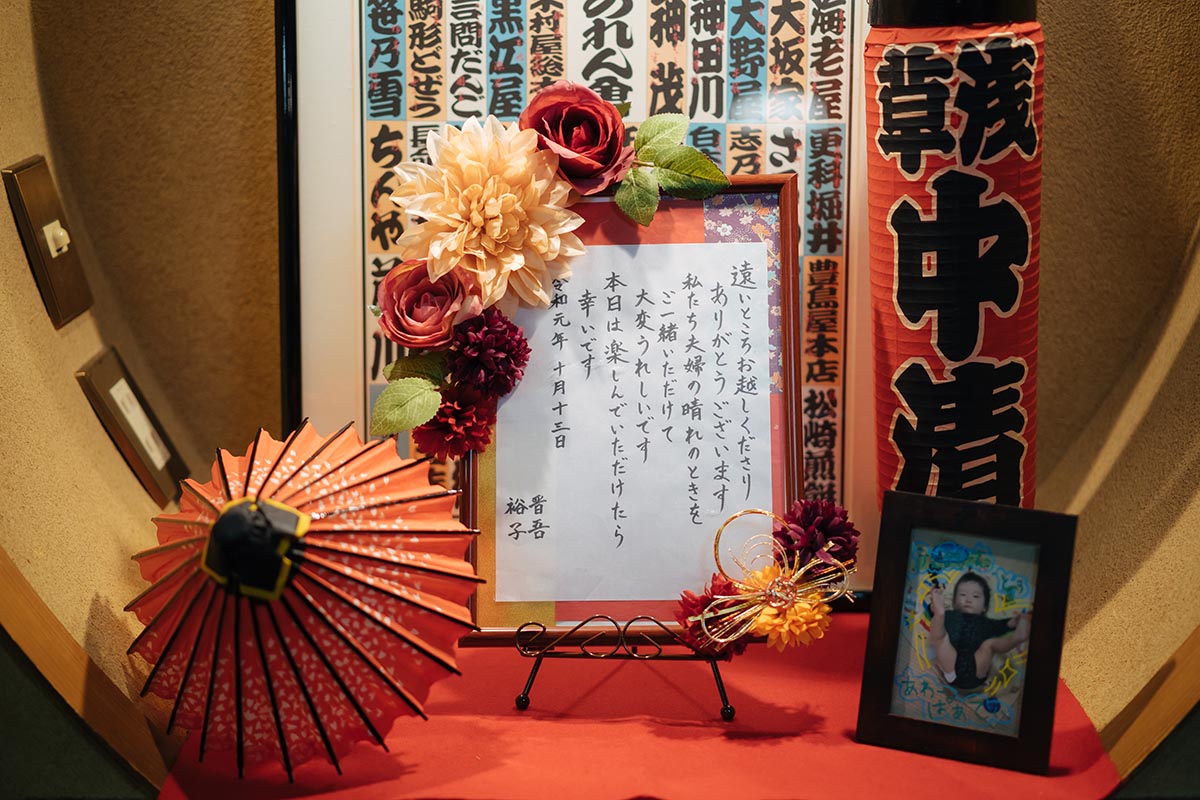 遠いところお越しくださり
ありがとうございます
私たち夫婦の晴れのときを
ご一緒いただけて
大変うれしいです
本日は楽しんでいただけたら
幸いです
令和元年 十月十三日
晋吾
裕子
浅草
中清
海老屋
大坂家
大野屋
神田川
神茂
のれん會
木村屋総本
言問だんご
黒江屋
駒形どぜう
笹乃雪
更科堀井
志乃
ちんや
豊島屋本店
松崎煎餅